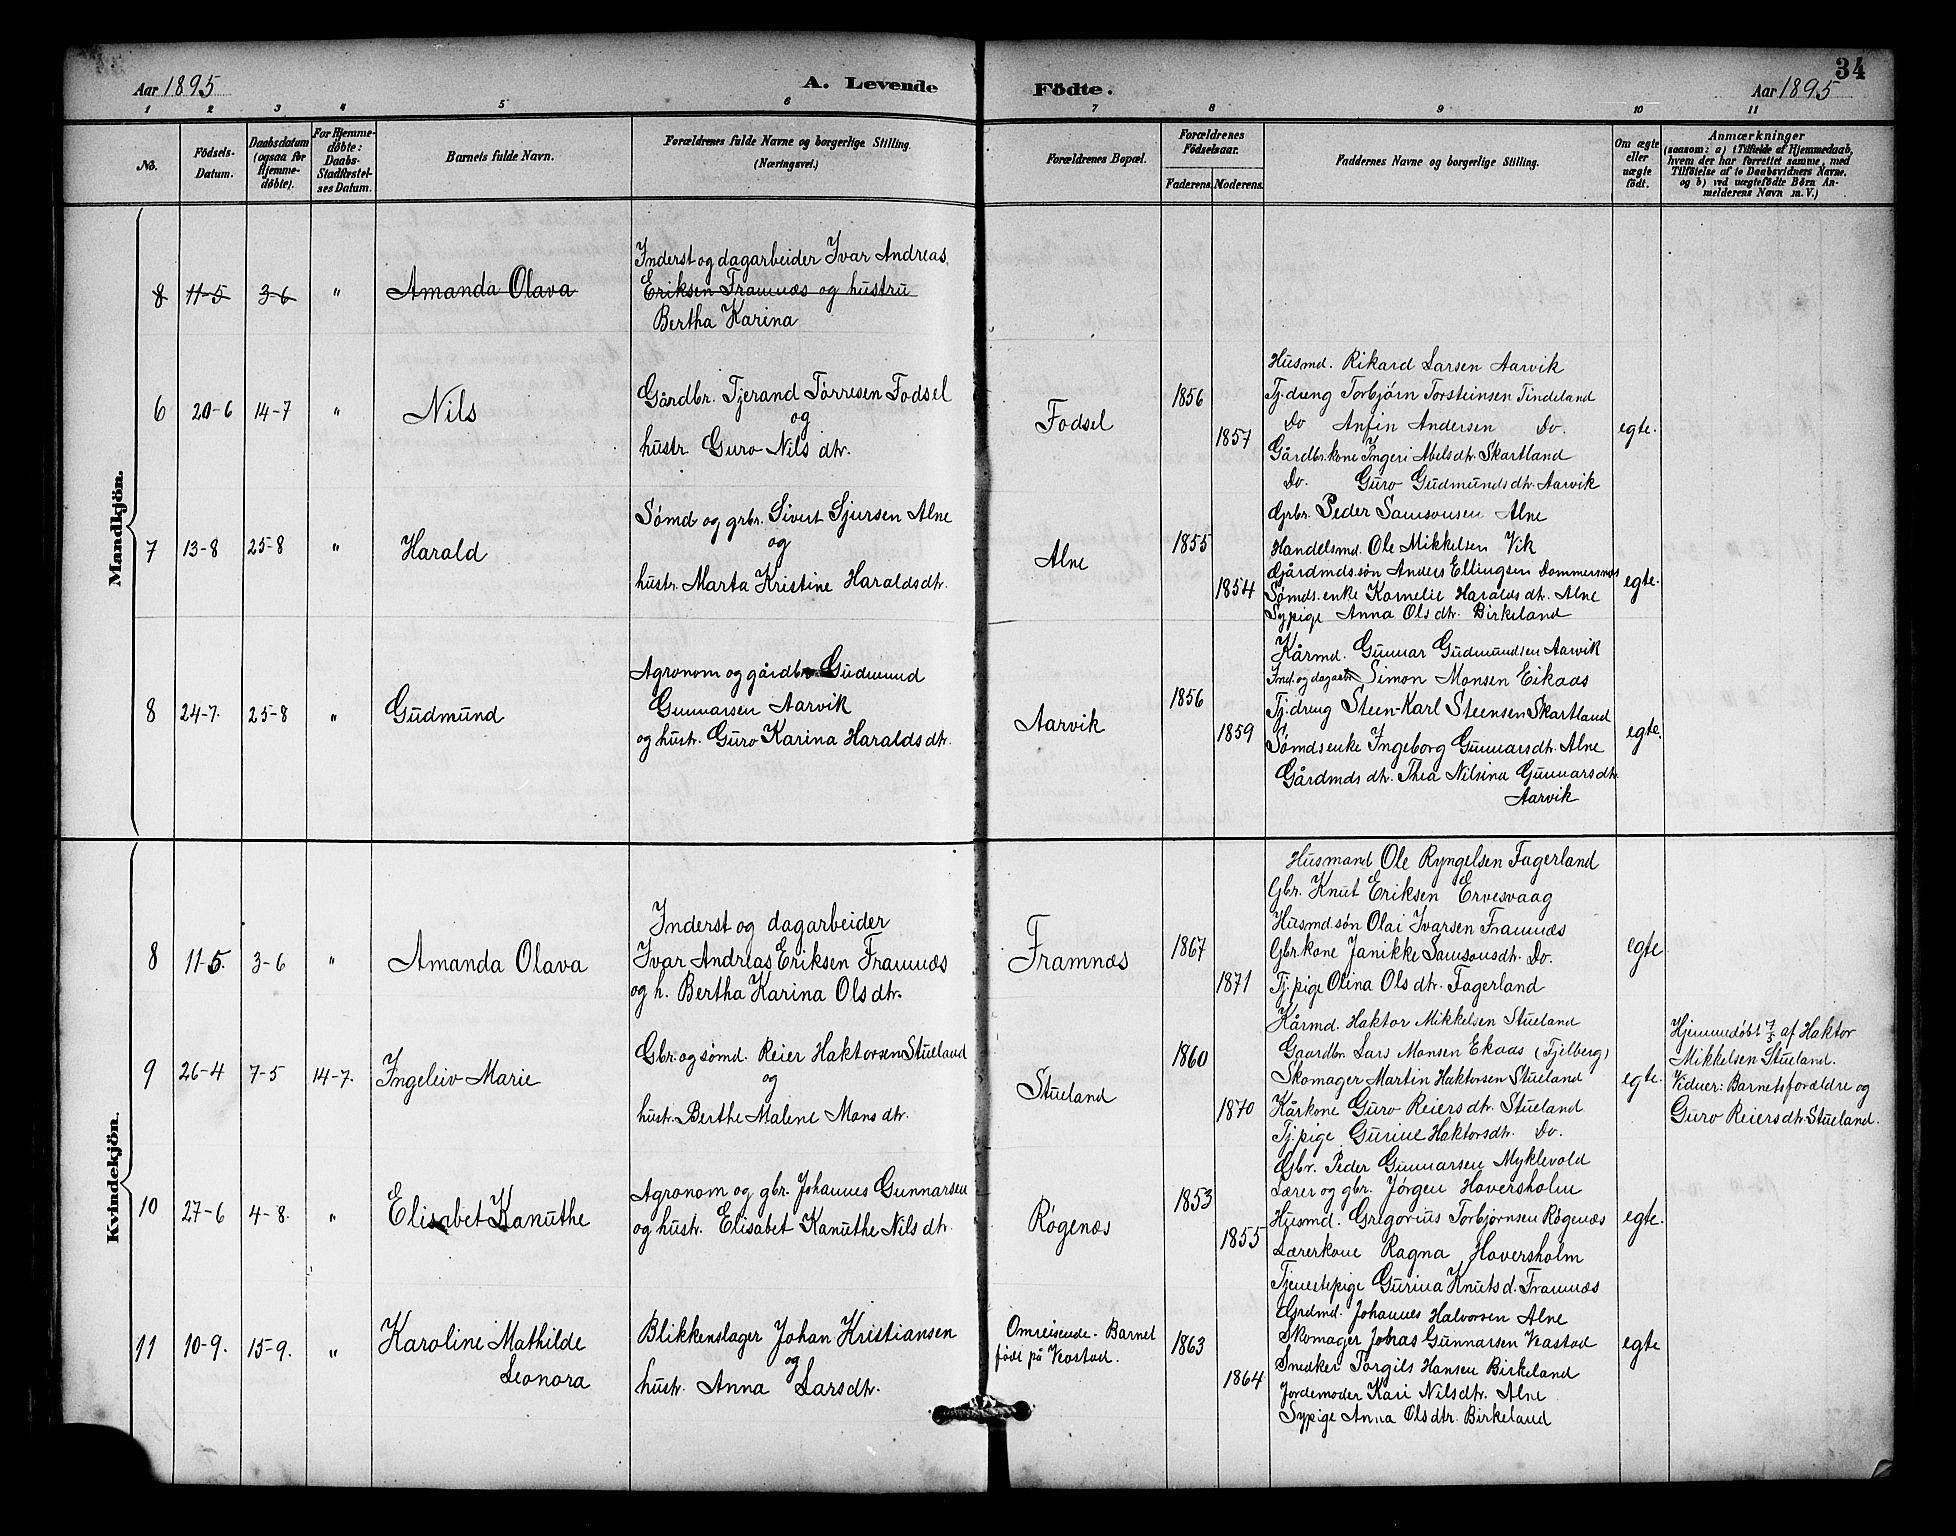 34
Aar 1895
A. Levende
Födte.
Aar 1895
1 2 3 4 5 6 7 8 9 10 11
No.
Födsels-
Datum.
Daabsdatum
(ogsaa for
Hjemme-
döbte).
For Hjemme-
döbte:
Daabs-
Stadfæstel-
ses Datum.
Barnets fulde Navn.
Forældrenes fulde Navne og borgerlige Stilling.
(Næringsvei.)
Forældrenes Bopæl.
Forældrenes
Födselsaar.
Faderens. Moderens.
Faddernes Navne og borgerlige Stilling.
Om ægte
eller
uægte
födt.
Anmærkninger
(saasom: a) i Tilfælde af Hjemmedaab,
hvem der har forrettet samme, med
Tilföielse af to Daabsvidners Navne,
og b) ved uægtefödte Börn An-
melderens Navn m. V.)
Mandkjön.
8 11-5 3-6 " Amanda Olava
Inderst og dagarbeider Ivar Andreas
Eriksen Framnæs og hustru
Bertha Karina
6 20-6 14-7 " Nils
Gårdbr. Tjerand Tørresen Fodsel
og
hustr. Guro Nilsdtr.
Fodsel
1856
1857
Husmd. Rikard Larsen Aarvik
Tj.dreng Torbjørn Torsteinsen Tindeland
Do Anfin Andersen Do.
Gårdbr.kone Ingeri Abelsdtr. Skartland
Do. Guro Gudmundsdtr. Aarvik
egte.
7 13-8 25-8 " Harald
Sømd og grbr. Sivert Sjursen Alne
og
hustr. Marta Kristine Haraldsdtr.
Alne
1855
1854
Grbr. Peder Samsonsen Alne
Handelsmd. Ole Mikkelsen Vik
Gårdmds.søn Anders Ellingsen Dommersnes
Sømds.enke Kornelie Haraldsdtr. Alne
Sypige Anna Olsdtr. Birkeland
egte.
8 24-7. 25-8 " Gudmund
Agronom og gårdbr. Gudmund
Gunnarsen Aarvik
og hustr. Guro Karina Haraldsdtr.
Aarvik
1856
1859
Kårmd. Gunnar Gudmundsen Aarvik
Ind. og dagarb. Simon Monsen Eikaas
Tj.dreng Steen-Karl Steensen Skartland
Sømdsenke Ingeborg Gunnarsdtr. Alne
Gårdmds dtr. Thea Nilsina Gunnarsdtr.
Aarvik
egte.
Kvindekjön.
8 11-5. 3-6 " Amanda Olava
Inderst og dagarbeider
Ivar Andreas Eriksen Framnæs
og h. Bertha Karina Olsdtr.
Framnæs
1867
1871
Husmand Ole Ryngelsen Fagerland
Gbr. Knut Eriksen Ervesvaag
Husmd.søn Olai Ivarsen Framnæs
Gbr.kone Janikke Samsonsdtr. Do.
Tj.pige Olina Olsdtr. Fagerland
egte
9 26-4 7-5 14-7. Ingeleiv Marie
Gbr. og sømd. Reier Haktorsen Stueland
og
hustr. Berthe Malene Monsdtr.
Stueland
1860
1870
Kårmd. Haktor Mikkelsen Stueland
Gaardbr. Lars Monsen Ekaas (Fjelberg)
Skomager Martin Haktorsen Stueland
Kårkone Guro Reiersdtr. Stueland
Tj.pige Gurine Haktorsdtr. Do.
egte.
Hjemmedøbt 7/5 af Haktor
Mikkelsen Stueland.
Vidner: Barnets forældre og
Guro Reiersdtr. Stueland.
10 27-6 4-8. " Elisabet Kanuthe
Agronom og gbr. Johannes Gunnarsen
og hustr. Elisabet Kanuthe Nilsdtr.
Røgenæs
1853
1855
Gbr. Peder Gunnarsen Myklevold
Lærer og gbr. Jørgen Hoversholm
Husmd. Gregorius Torbjørnsen Røgenæs
Lærerkone Ragna Hoversholm
Tjenestepige Gurina Knutsd. Framnæs
egte.
11 10-9. 15-9. " Karoline Mathilde
Leonora
Blikkenslager Johan Kristiansen
og
hustr. Anna Larsdtr.
Omreisende. Barnet
født på Veastad.
1863
1864
Grdmd. Johannes Halvorsen Alne
Skomager Jonas Gunnarsen Veastad
Snedker Torgils Hansen Birkeland
Jordemoder Kari Nilsdtr. Alne
Sypige Anna Olsdtr. Birkeland
egte